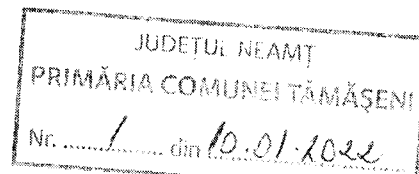 JUDEȚUL NEAMȚ
PRIMĂRIA COMUNEI TĂMĂȘENI
Nr. ....... 1 ....... din 10.01.2022